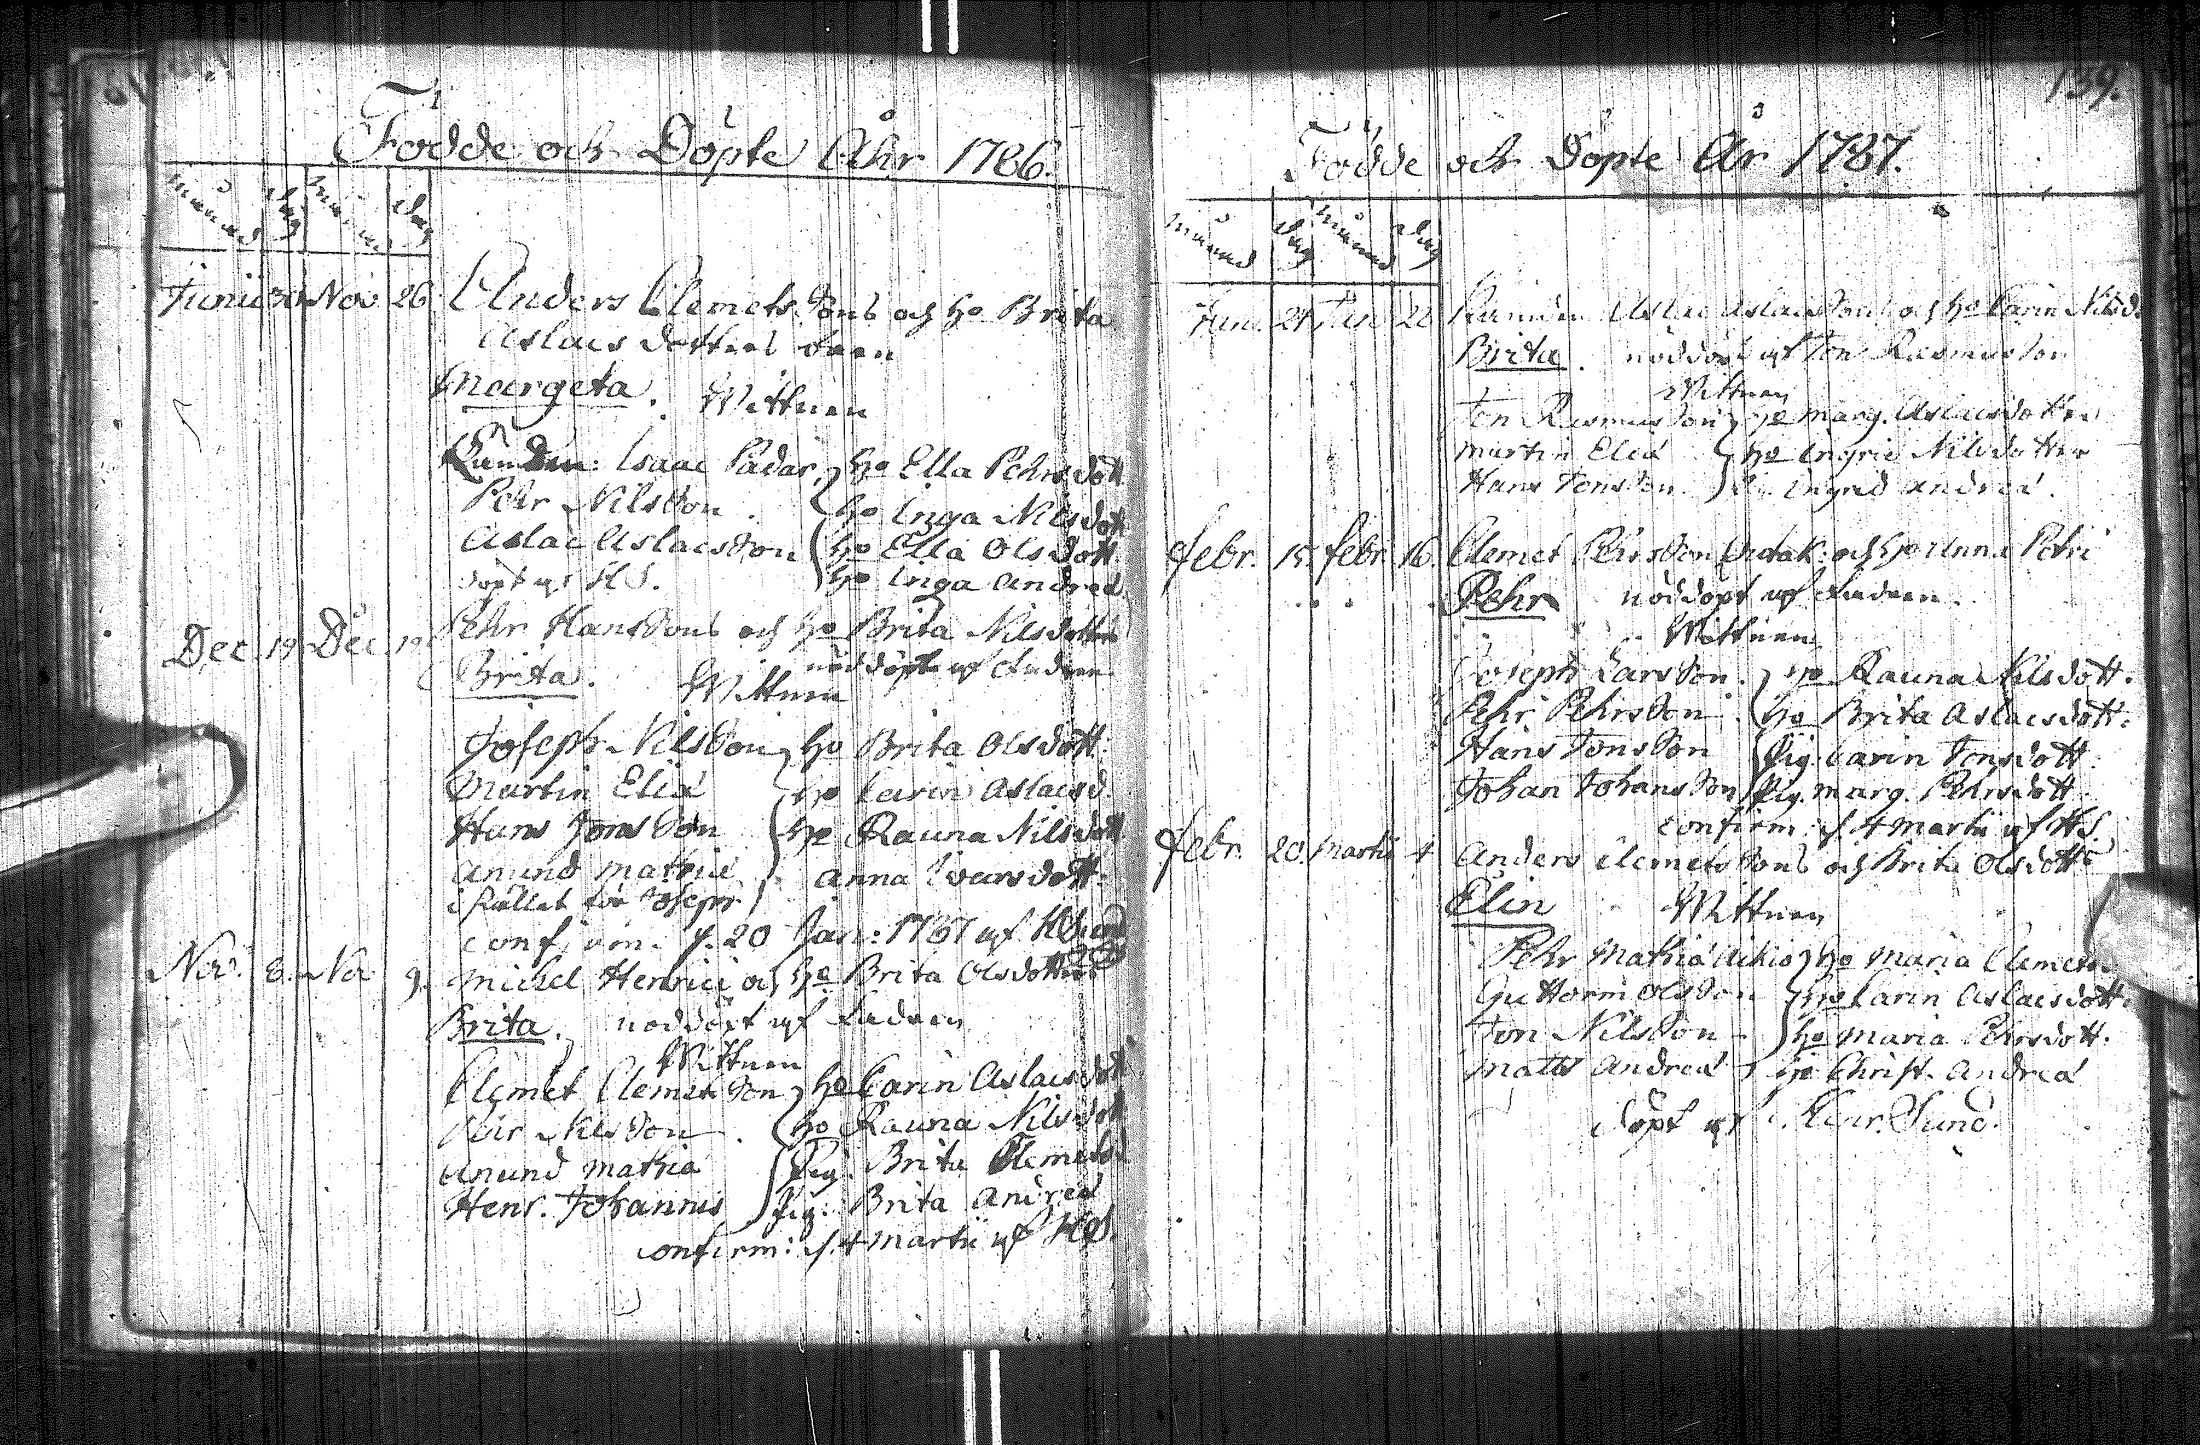 Födde och Döpte Åhr 1786.
månad dag månad dag
Junii 30 Nov 26 Anders Clemetssons och ho Brita
Aslacsdotters barn
Margeta. Wittnen
Isaac Padar, ho Ella Pehrsdott
Pehr Nilsson. ho Inga Nilsdott
Aslac Aslacsson ho Ella Olsdott
döpt af HS. ho Inga Andreæ
Dec. 19 Dec. 19 Pehr Hanssons och ho Brita Nilsdotters
Brita. nöddöpt af fadren
Wittnen
Joseph Nilsson ho Brita Olsdott.
Martin Eliæ ho Carin Aslacsd.
Hans Jonsson ho Rauna Nilsdott
Anund Mathiæ Anna Ivarsdott.
i stället för Joseph
confirm. d. 20 Jan: 1787 af HSund
Nov. 8. Nov 9. Michel Henrici och ho Brita Olsdotters
Brita. nöddöpt af fadren
Wittnen
Clemet Clemetsson ho Carin Aslacsdott
Pehr Nilsson. ho Rauna Nilsdott
Anund Mathiæ Pig. Brita Clemetsd
Henr. Johannis Pig: Brita Andreæ
confirm: d. 4 Martii af HS.
139.
Födde och Döpte År 1787.
månad dag månad dag
Jan. 21 Jan 22 Aslac Aslacssons och ho Carin Nilsd.
Brita. nöddöpt af Jon Rasmusson
Wittnen
Jon Rasmusson ho Marg. Aslacsdotter
Martin Eliæ ho Ingrid Nilsdotter
Hans Jonsson Ingrid Andreæ.
Febr. 15. Febr. 16. Clemet Pehrsson och ho Anna Petri
Pehr nöddöpt af fadren.
Wittnen
Joseph Larsson. ho Rauna Nilsdott.
Pehr Pehrsson. ho Brita Aslacsdott.
Hans Jonsson Pig. Carin Jonsdott.
Johan Johansson Pig. Marg. Pehrsdott.
confirm: d. 4 Martii af HS.
Febr. 20. Martii 4 Anders Clemetssons och Brita Olsdotts
Elin Wittnen
Pehr Mathiæ Aikio ho Maria Clemets
Guttorm Olsson ho Carin Aslacsdott.
Jon Nilsson ho Maria Pehrsdott.
Matts Andreæ ho Christ. Andreæ
döpt af Henr. Sund.